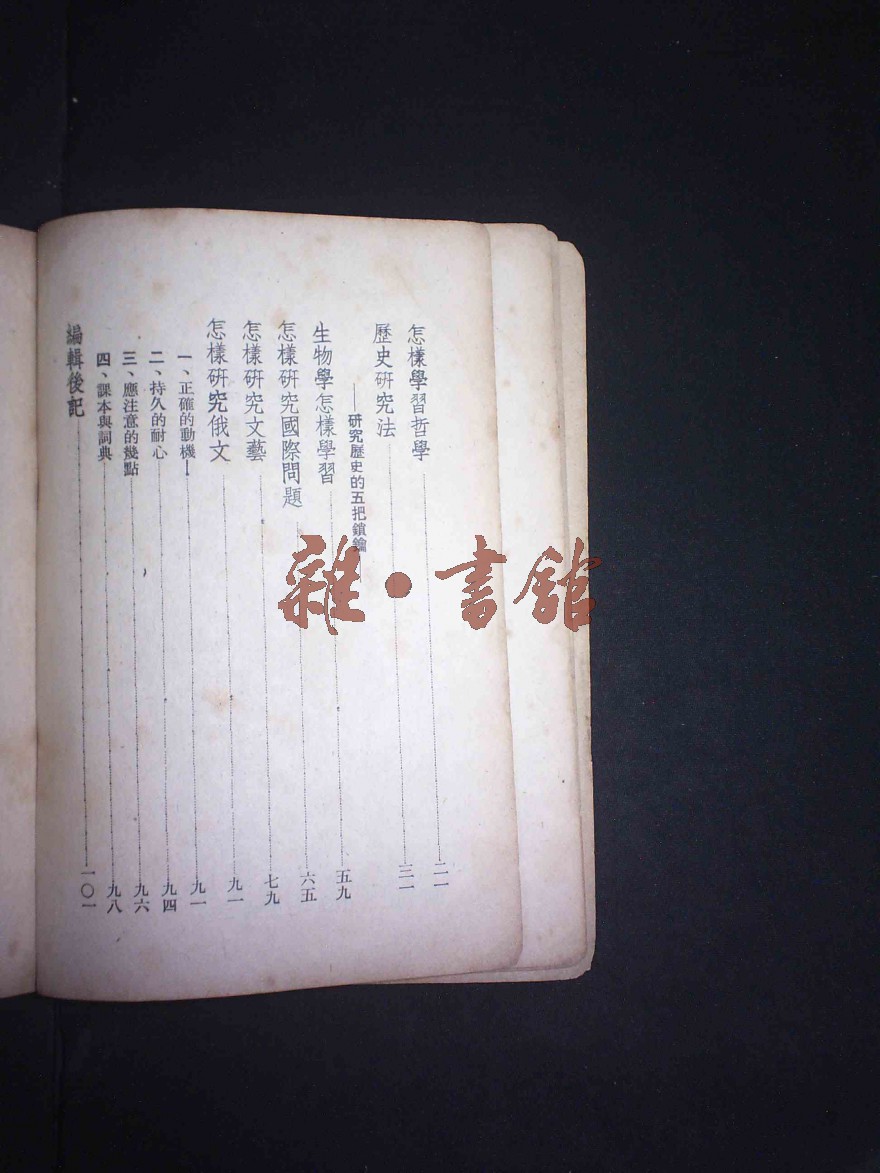 怎樣學習哲學……二一
歷史研究法……三一
——研究歷史的五把鎖鑰
生物學怎樣學習……五九
怎樣研究國際問題……六五
怎樣研究文藝……七九
怎樣研究俄文……九一
一、正確的動機……九一
二、持久的耐心……九四
三、應注意的幾點……九六
四、課本與詞典……九八
編輯後記……一〇一
雜·書館